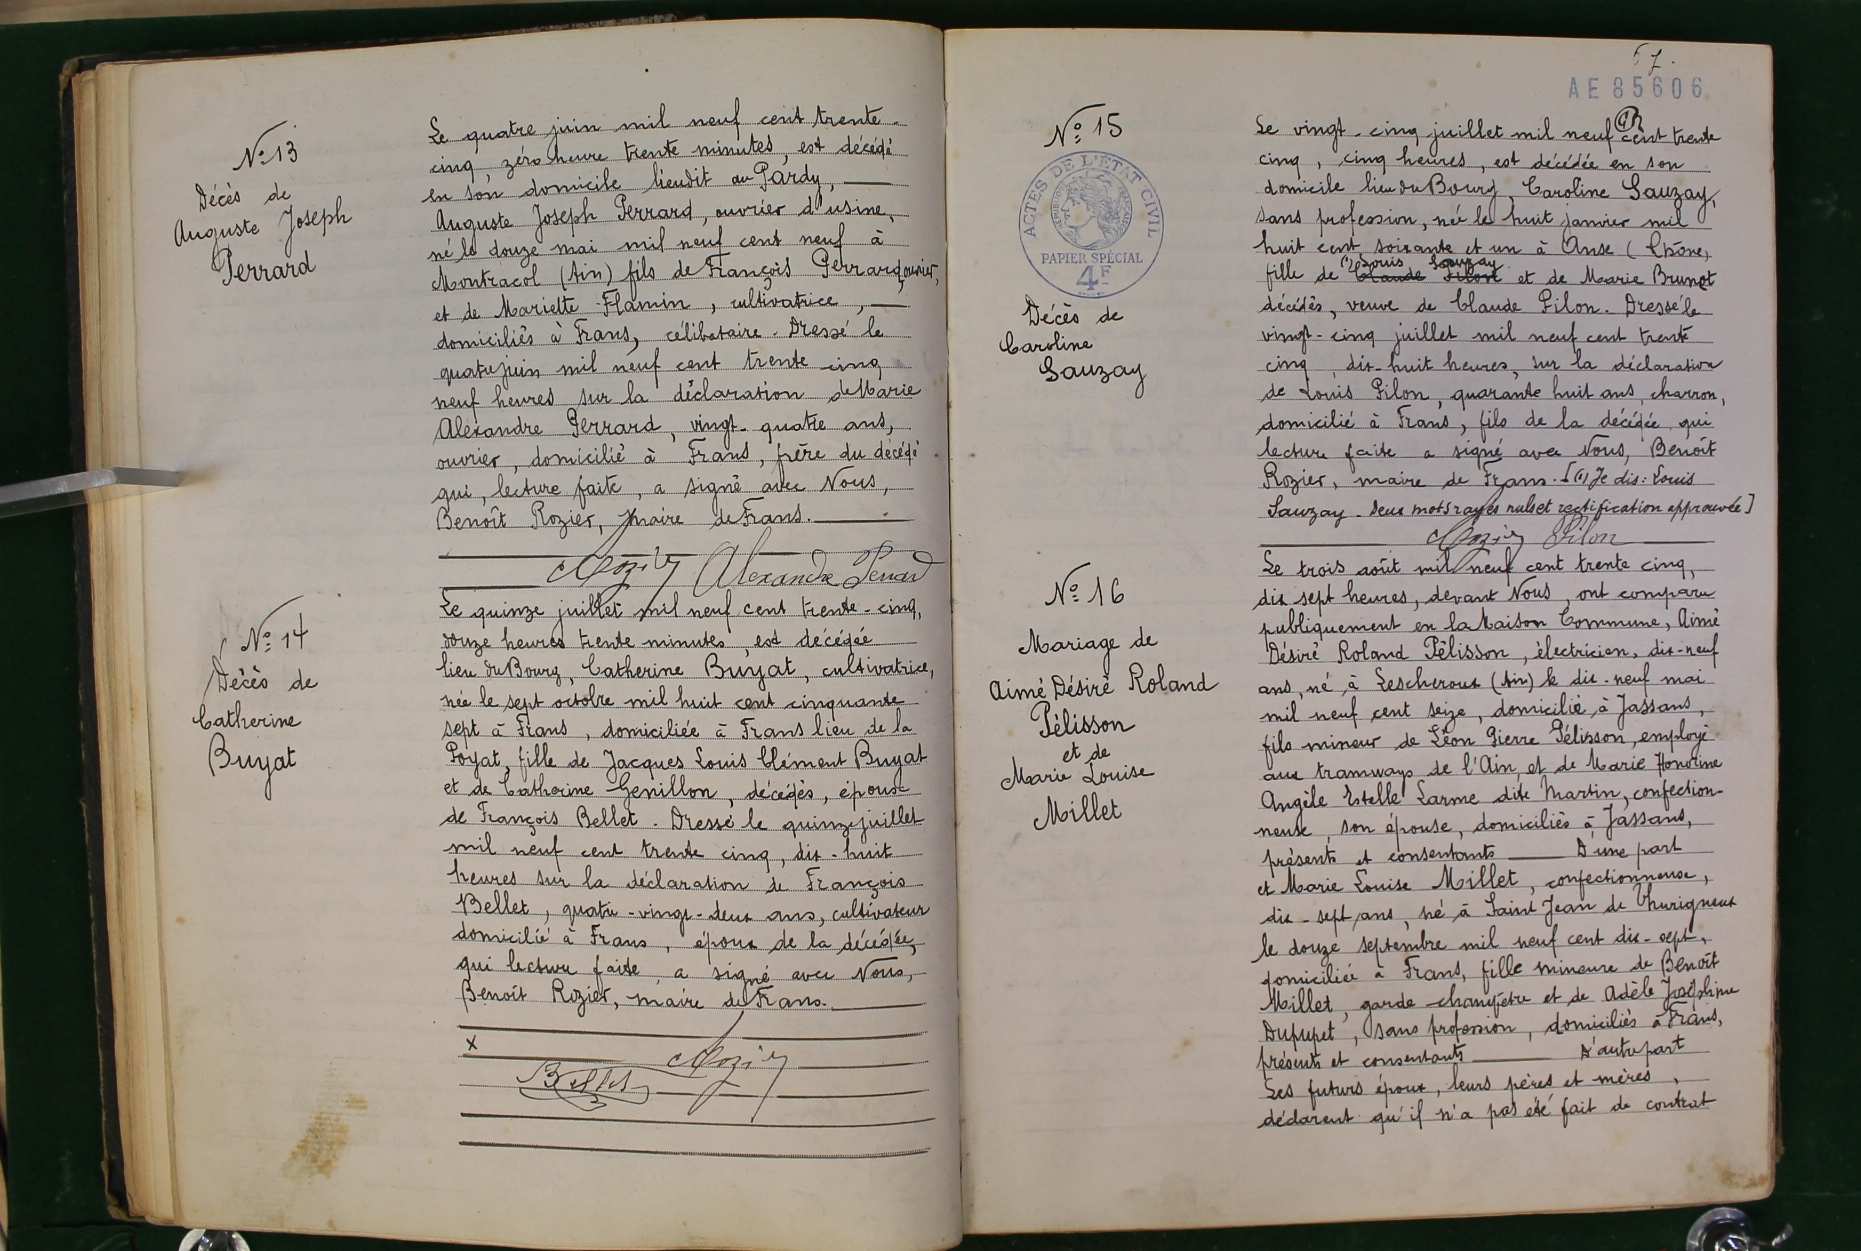 N° 13
Décès de
Auguste Joseph
Perrard
Le quatre juin mil neuf cent trente-
cinq, zéro heure trente minutes, est décédé
en son domicile lieudit au Pardy,
Auguste Joseph Perrard, ouvrier d'usine,
né le douze mai mil neuf cent neuf à
Montracol (Ain) fils de François Perrard, ouvrier,
et de Mariette Flamin, cultivatrice,
domiciliés à Frans, célibataire. Dressé le
quatre juin mil neuf cent trente cinq
neuf heures sur la déclaration de Marie
Alexandre Perrard, vingt-quatre ans,
ouvrier, domicilié à Frans, frère du décédé
qui, lecture faite, a signé avec Nous,
Benoît Rozier, maire de Frans.
Rozier Alexandre Perrard
N° 14
Décès de
Catherine
Buyat
Le quinze juillet mil neuf cent trente-cinq,
douze heures trente minutes, est décédée
lieu du Bourg, Catherine Buyat, cultivatrice,
née le sept octobre mil huit cent cinquante
sept à Frans, domiciliée à Frans lieu de la
Poyat, fille de Jacques Louis Clément Buyat
et de Catherine Genillon, décédés, épouse
de François Bellet. Dressé le quinze juillet
mil neuf cent trente cinq, dix-huit
heures sur la déclaration de François
Bellet, quatre-vingt-deux ans, cultivateur
domicilié à Frans, époux de la décédée,
qui lecture faite a signé avec Nous,
Benoît Rozier, maire de Frans.
x
Rozier
Bellet
67.
AE 85606
N° 15
ACTES DE L'ÉTAT CIVIL
PAPIER SPÉCIAL
4F
Décès de
Caroline
Sauzay
Le vingt-cinq juillet mil neuf cent trente
cinq, cinq heures, est décédée en son
domicile lieu du Bourg, Caroline Sauzay,
sans profession, née le huit janvier mil
huit cent soixante et un à Anse (Rhône,
(1) Louis Sauzay
fille de Claude Pilon et de Marie Brunot
décédés, veuve de Claude Pilon. Dressé le
vingt-cinq juillet mil neuf cent trente
cinq, dix-huit heures, sur la déclaration
de Louis Pilon, quarante huit ans, charron,
domicilié à Frans, fils de la décédée qui
lecture faite a signé avec Nous, Benoît
Rozier, maire de Frans. [(1) Je dis: Louis
Sauzay. deux mots rayés nuls et rectification approuvée]
Rozier Pilon
N° 16
Mariage de
Aimé Désiré Roland
Pélisson
et de
Marie Louise
Millet
Le trois août mil neuf cent trente cinq,
dix sept heures, devant Nous, ont comparu
publiquement en la Maison Commune, Aimé
Désiré Roland Pélisson, électricien, dix-neuf
ans, né à Lescheroux (Ain) le dix-neuf mai
mil neuf cent seize, domicilié à Jassans,
fils mineur de Léon Pierre Pélisson, employé
aux tramways de l'Ain, et de Marie Honorine
Angèle Estelle Larme dite Martin, confection-
neuse, son épouse, domiciliés à Jassans,
présents et consentants D'une part
et Marie Louise Millet, confectionneuse,
dix-sept ans, né à Saint Jean de Thurigneux
le douze septembre mil neuf cent dix-sept,
domiciliée à Frans, fille mineure de Benoît
Millet, garde-champêtre et de Adèle Joséphine
Dupupet, sans profession, domiciliés à Frans,
présents et consentants D'autre part
Les futurs époux, leurs pères et mères,
déclarent qu'il n'a pas été fait de contrat